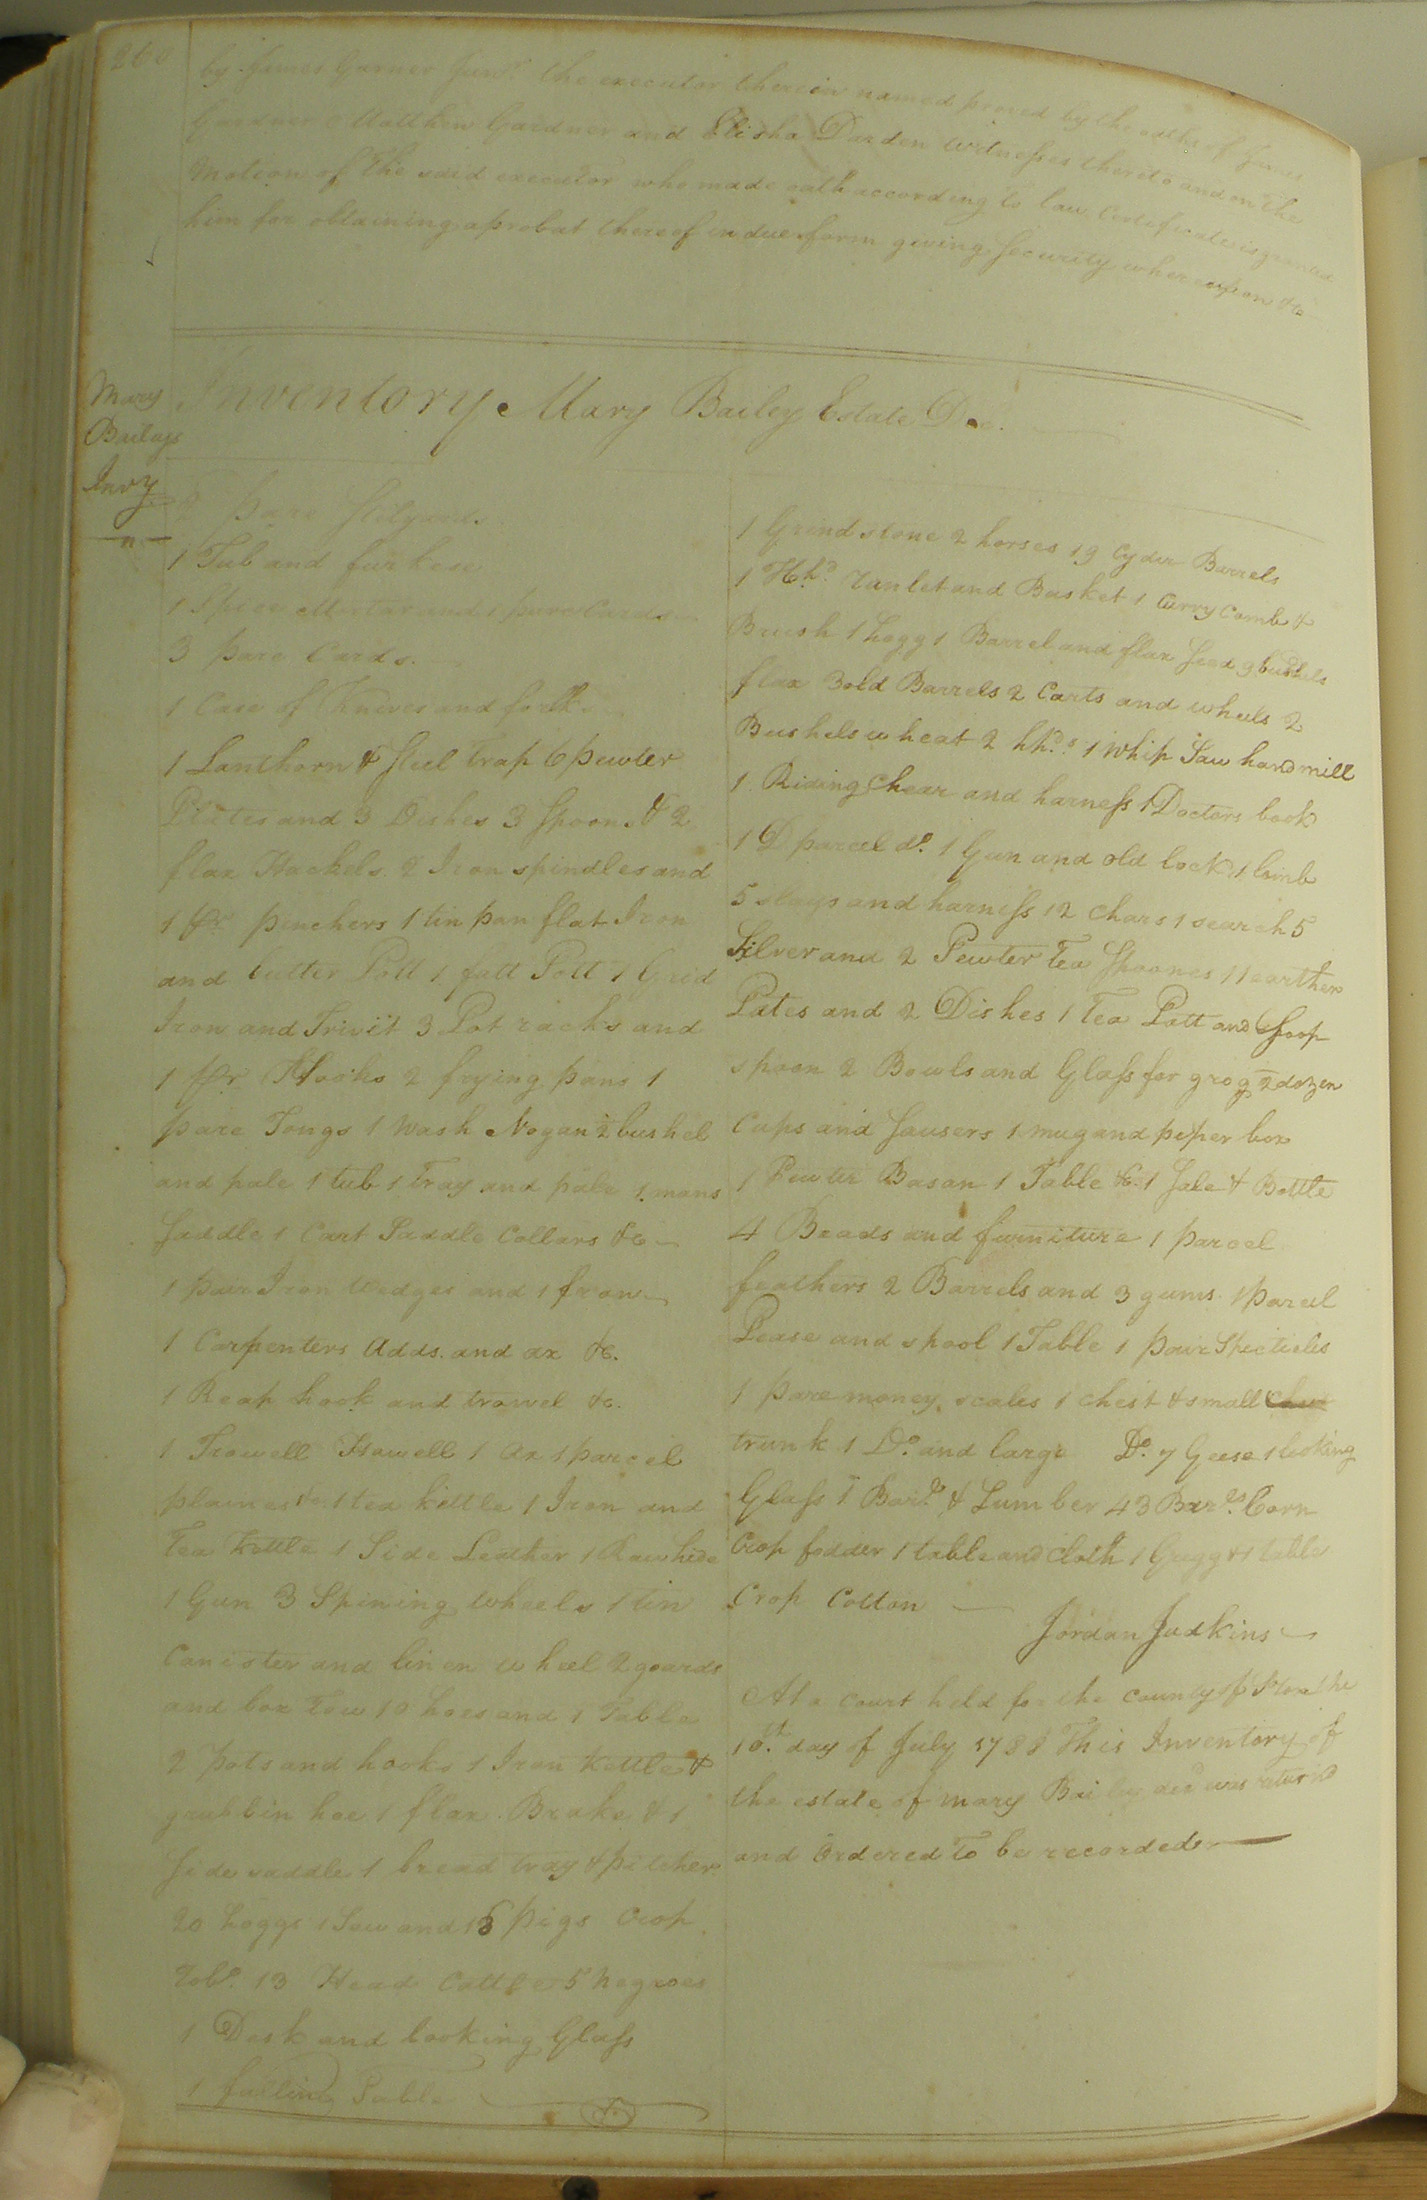 260
by James Garner Junr. the executor therein named proved by the oaths of James
Gardner Matthew Gardner and Elisha Darden witnesses thereto and on the
Motion of the said executor who made oath according to law Certificate is granted
him for obtaining a probat thereof in due form giving security whereupon &c
Mary
Baileys
Invy
Inventory Mary Bailey Estate Dec.
2 pare Stilyards
1 Tub and
1 Spice Mortar and 1 pare Cards
3 pare Cards.
1 Case of Knives and forks
1 Lanthorn & Steel trap 6 pewter
Plates and 3 Dishes 3 Spoons & 2
flax Hackels 2 Iron spindles and
1 pr pinchers 1 tin pan flat Iron
and butter Pott 1 fatt Pott 1 Grid
Iron and Trivit 3 Pot racks and
1 pr Hooks 2 frying pans 1
pare Tongs 1 Wash Nogan ½ bushel
and pale 1 tub 1 Tray and pale 1 mans
Saddle 1 Cart Saddle Collars &c
1 pair Iron Wedges and 1 frow
1 Carpenters Adds. and ax &c.
1 Reap hook and trowel &c.
1 Trowell Howell 1 ax 1 parcel
plaines &c. 1 tea kittle 1 Iron and
Tea Kettle 1 Side Leather 1 Raw hide
1 Gun 3 Spining Wheels 1 tin
Canister and linen wheel 2 goards
and box Tow 10 hoes and 1 Table
2 pots and hooks 1 Iron Kettle &
grubbin hoe 1 flax Brake & 1
Side saddle 1 bread tray & pitcher
20 hoggs 1 Sow and 18 pigs Crop
Tobo. 13 Head Cattle 5 negroes
1 Desk and looking Glass
1 falling Table
1 Grind stone 2 horses 19 Cyder Barrels
1 Hhd. runlet and Basket 1 Curry Comb &
Brush 1 hogg 1 Barrel and flax Seed 9 bushels
flax 3 old Barrels 2 Carts and wheels 2
Bushels wheat 2 hhds 1 Whip Saw hand mill
1 Riding Chear and harness 1 Doctors book
1 D parcel do. 1 Gun and old lock 1 lumb
5 slays and harniss 12 Chars 1 search 5
Silver and 2 Pewter Tea Spoones 11 earthen
Pates and 2 Dishes 1 Tea Pott and Soop
spoon 2 Bowls and Glass for grog 2 dozen
Cups and Sausers 1 mug and peper box
1 Pewter Basan 1 Table &c. 1 Jale & Bottle
4 Beads and furniture 1 parcel
feathers 2 Barrels and 3 gums 1 parcel
Pease and spool 1 Table 1 pair Specticles
1 pare money scales 1 chest & small
trunk 1 Do. and large Do. 7 Geese 1 looking
Glass 1 Barl. & Lumber 43 Barls. Corn
Crop fodder 1 table and Cloth 1 Gugg & 1 table
Crop Cotton
Jordan Judkins
At a Court held for the County of the
10th. day of July 178 This Inventory of
the estate of Mary Bailey decd was returnd
and ordered to be recorded